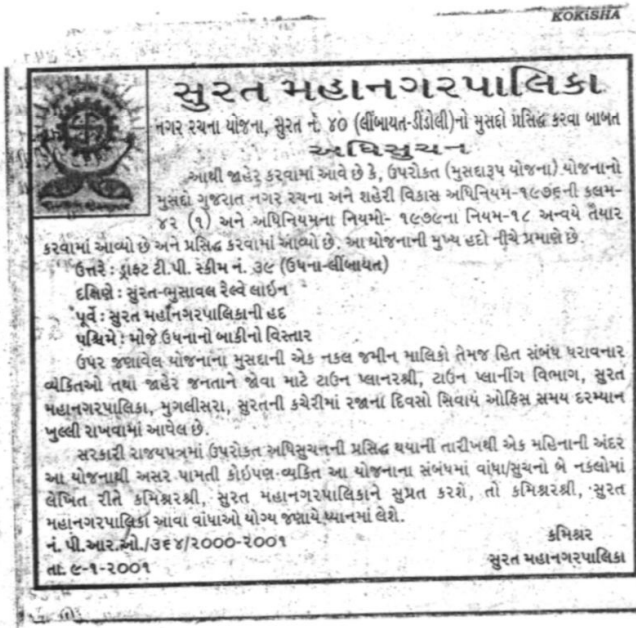 KOKiSHA
સુરત મહાનગરપાલિકા
નગર રચના યોજના, સુરત નં. ૪૦ (લીંબાયત-ડીંડોલી)નો મુસદ્દો પ્રસિદ્ધ કરવા બાબત
અધિસુચન
આથી જાહેર કરવામાં આવે છે કે, ઉપરોકત (મુસદારૂપ યોજના) યોજનાનો
મુસદો ગુજરાત નગર રચના અને શહેરી વિકાસ અધિનિયમ-૧૯૭૬ની કલમ-
૪૨ (૧) અને અધિનિયમના નિયમો- ૧૯૭૯ના નિયમ-૧૮ અન્વયે તૈયાર
કરવામાં આવ્યો છે અને પ્રસિદ્ધ કરવામાં આવ્યો છે. આ યોજનાની મુખ્ય હદો નીચે પ્રમાણે છે.
ઉત્તરે : ડ્રાફ્ટ ટી.પી. સ્કીમ નં. ૩૯ (ઉધના-લીંબાયત)
દક્ષિણે : સુરત-ભુસાવલ રેલ્વે લાઇન
પૂર્વે : સુરત મહાનગરપાલિકાની હદ
પશ્ચિમે : મોજે ઉધનાનો બાકીનો વિસ્તાર
ઉપર જણાવેલ યોજનાના મુસદાની એક નકલ જમીન માલિકો તેમજ હિત સંબંધ ધરાવનાર
વ્યકિતઓ તથા જાહેર જનતાને જોવા માટે ટાઉન પ્લાનરશ્રી, ટાઉન પ્લાનીંગ વિભાગ, સુરત
મહાનગરપાલિકા, મુગલીસરા, સુરતની કચેરીમાં રજાના દિવસો સિવાય ઓફિસ સમય દરમ્યાન
ખુલ્લી રાખવામાં આવેલ છે.
સરકારી રાજ્યપત્રમાં ઉપરોકત અધિસુચનની પ્રસિદ્ધ થયાની તારીખથી એક મહિનાની અંદર
આ યોજનાથી અસર પામતી કોઇપણ-વ્યકિત આ યોજનાના સંબંધમાં વાંધા/સુચનો બે નકલોમાં
લેખિત રીતે કમિશ્નરશ્રી, સુરત મહાનગરપાલિકાને સુપ્રત કરશે, તો કમિશ્નરશ્રી, સુરત
મહાનગરપાલિકા આવા વાંધાઓ યોગ્ય જણાયે ધ્યાનમાં લેશે.
નં. પી.આર.ઓ./૩૬૪/૨૦૦૦-૨૦૦૧ કમિશ્નર
તા. ૯-૧-૨૦૦૧ સુરત મહાનગરપાલિકા